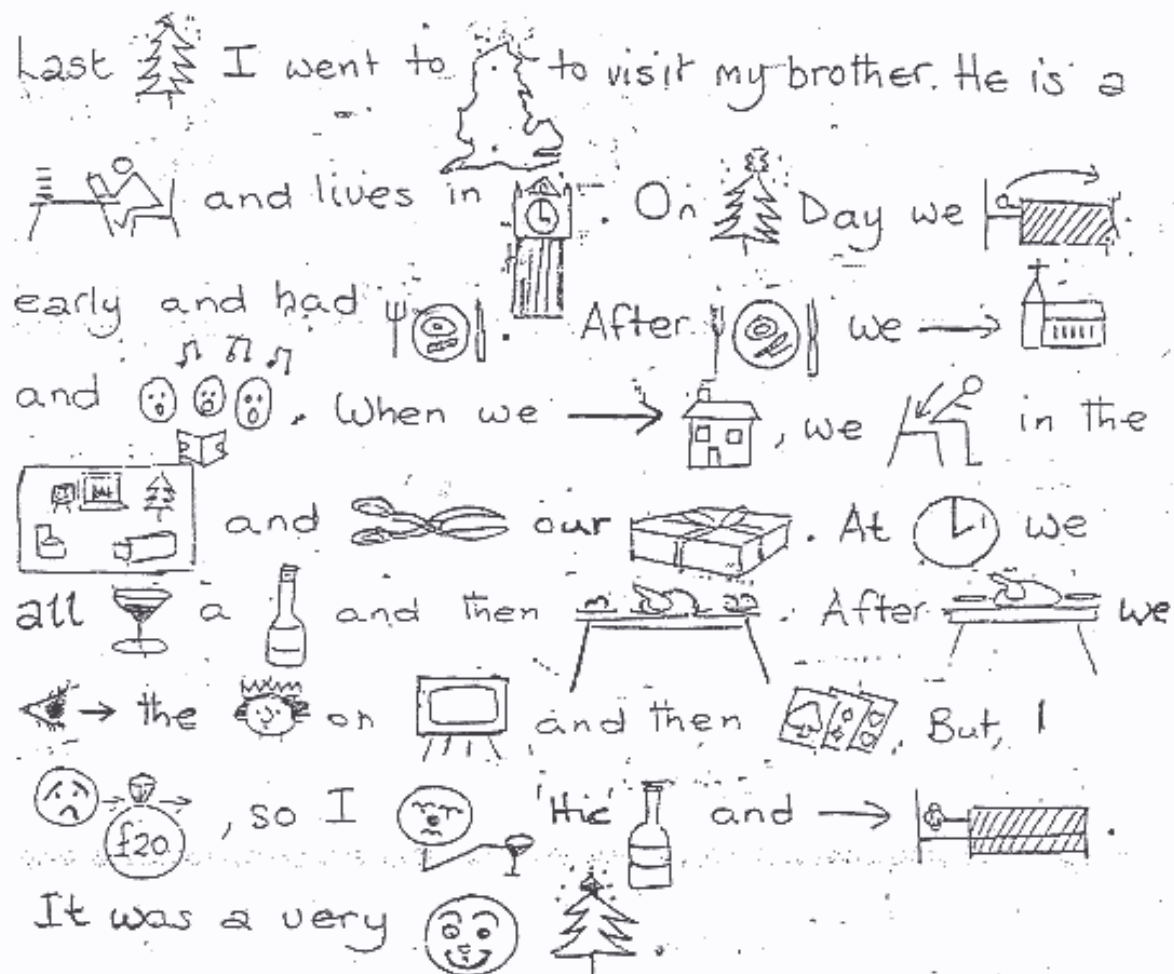 Last I went to to visit my brother. He is a
and lives in . On Day we .
early and had . After we
and . When we , we in the
and our . At we
all a and then . After we
the on and then . But, I
£20 , so I "Hic" and .
It was a very .